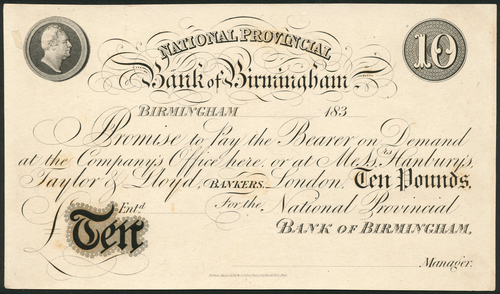 NATIONAL PROVINCIAL
10
Bank of Birmingham
BIRMINGHAM 183
Promise to Pay the Bearer on Demand
at the Company's Office here, or at Mess.rs Hanburys,
Taylor & Lloyd, BANKERS London, Ten Pounds,
Ent.d For the National Provincial
£ Ten BANK OF BIRMINGHAM,
Manager.